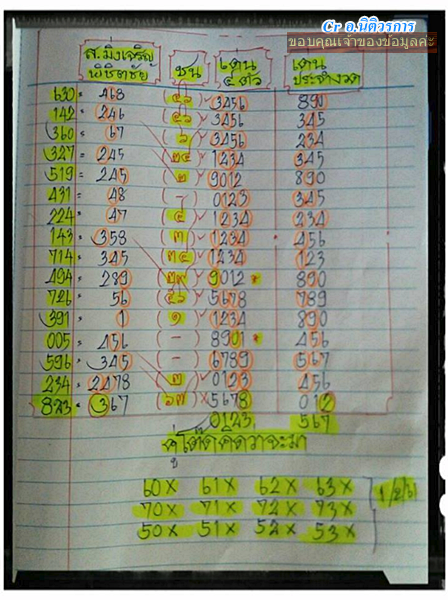 Cr อ.นิติวรการ
ขอบคุณเจ้าของข้อมูลค่ะ
ส.มิ่งเจริญ พิชิตชัย ชน เด่น ๕ ตัว เด่น ประจำงวด
630 = 468 (๔๖) 3456 890
142 = 246 (๔๖) 3456 345
360 = 67 (๖) 3456 234
327 = 245 (๒๔) 1234 345
519 = 245 (๒) 9012 890
431 = 48 (-) 0123 345
224 = 47 (๔) 1234 234
143 = 358 (๓) 1234 456
714 = 345 (๓๔) 1234 123
494 = 289 (๒๙) 9012 * 890
726 = 56 (๕๖) 5678 789
391 = 1 (๑) 1234 890
005 = 456 (-) 8901 * 456
596 = 345 (-) 6789 567
234 = 2478 (๓) 0123 456
823 = 367 (๖๗) 5678 012
0123 567
โต๊ดคิดว่าจะมา
60x 61x 62x 63x
70x 71x 72x 73x
50x 51x 52x 53x